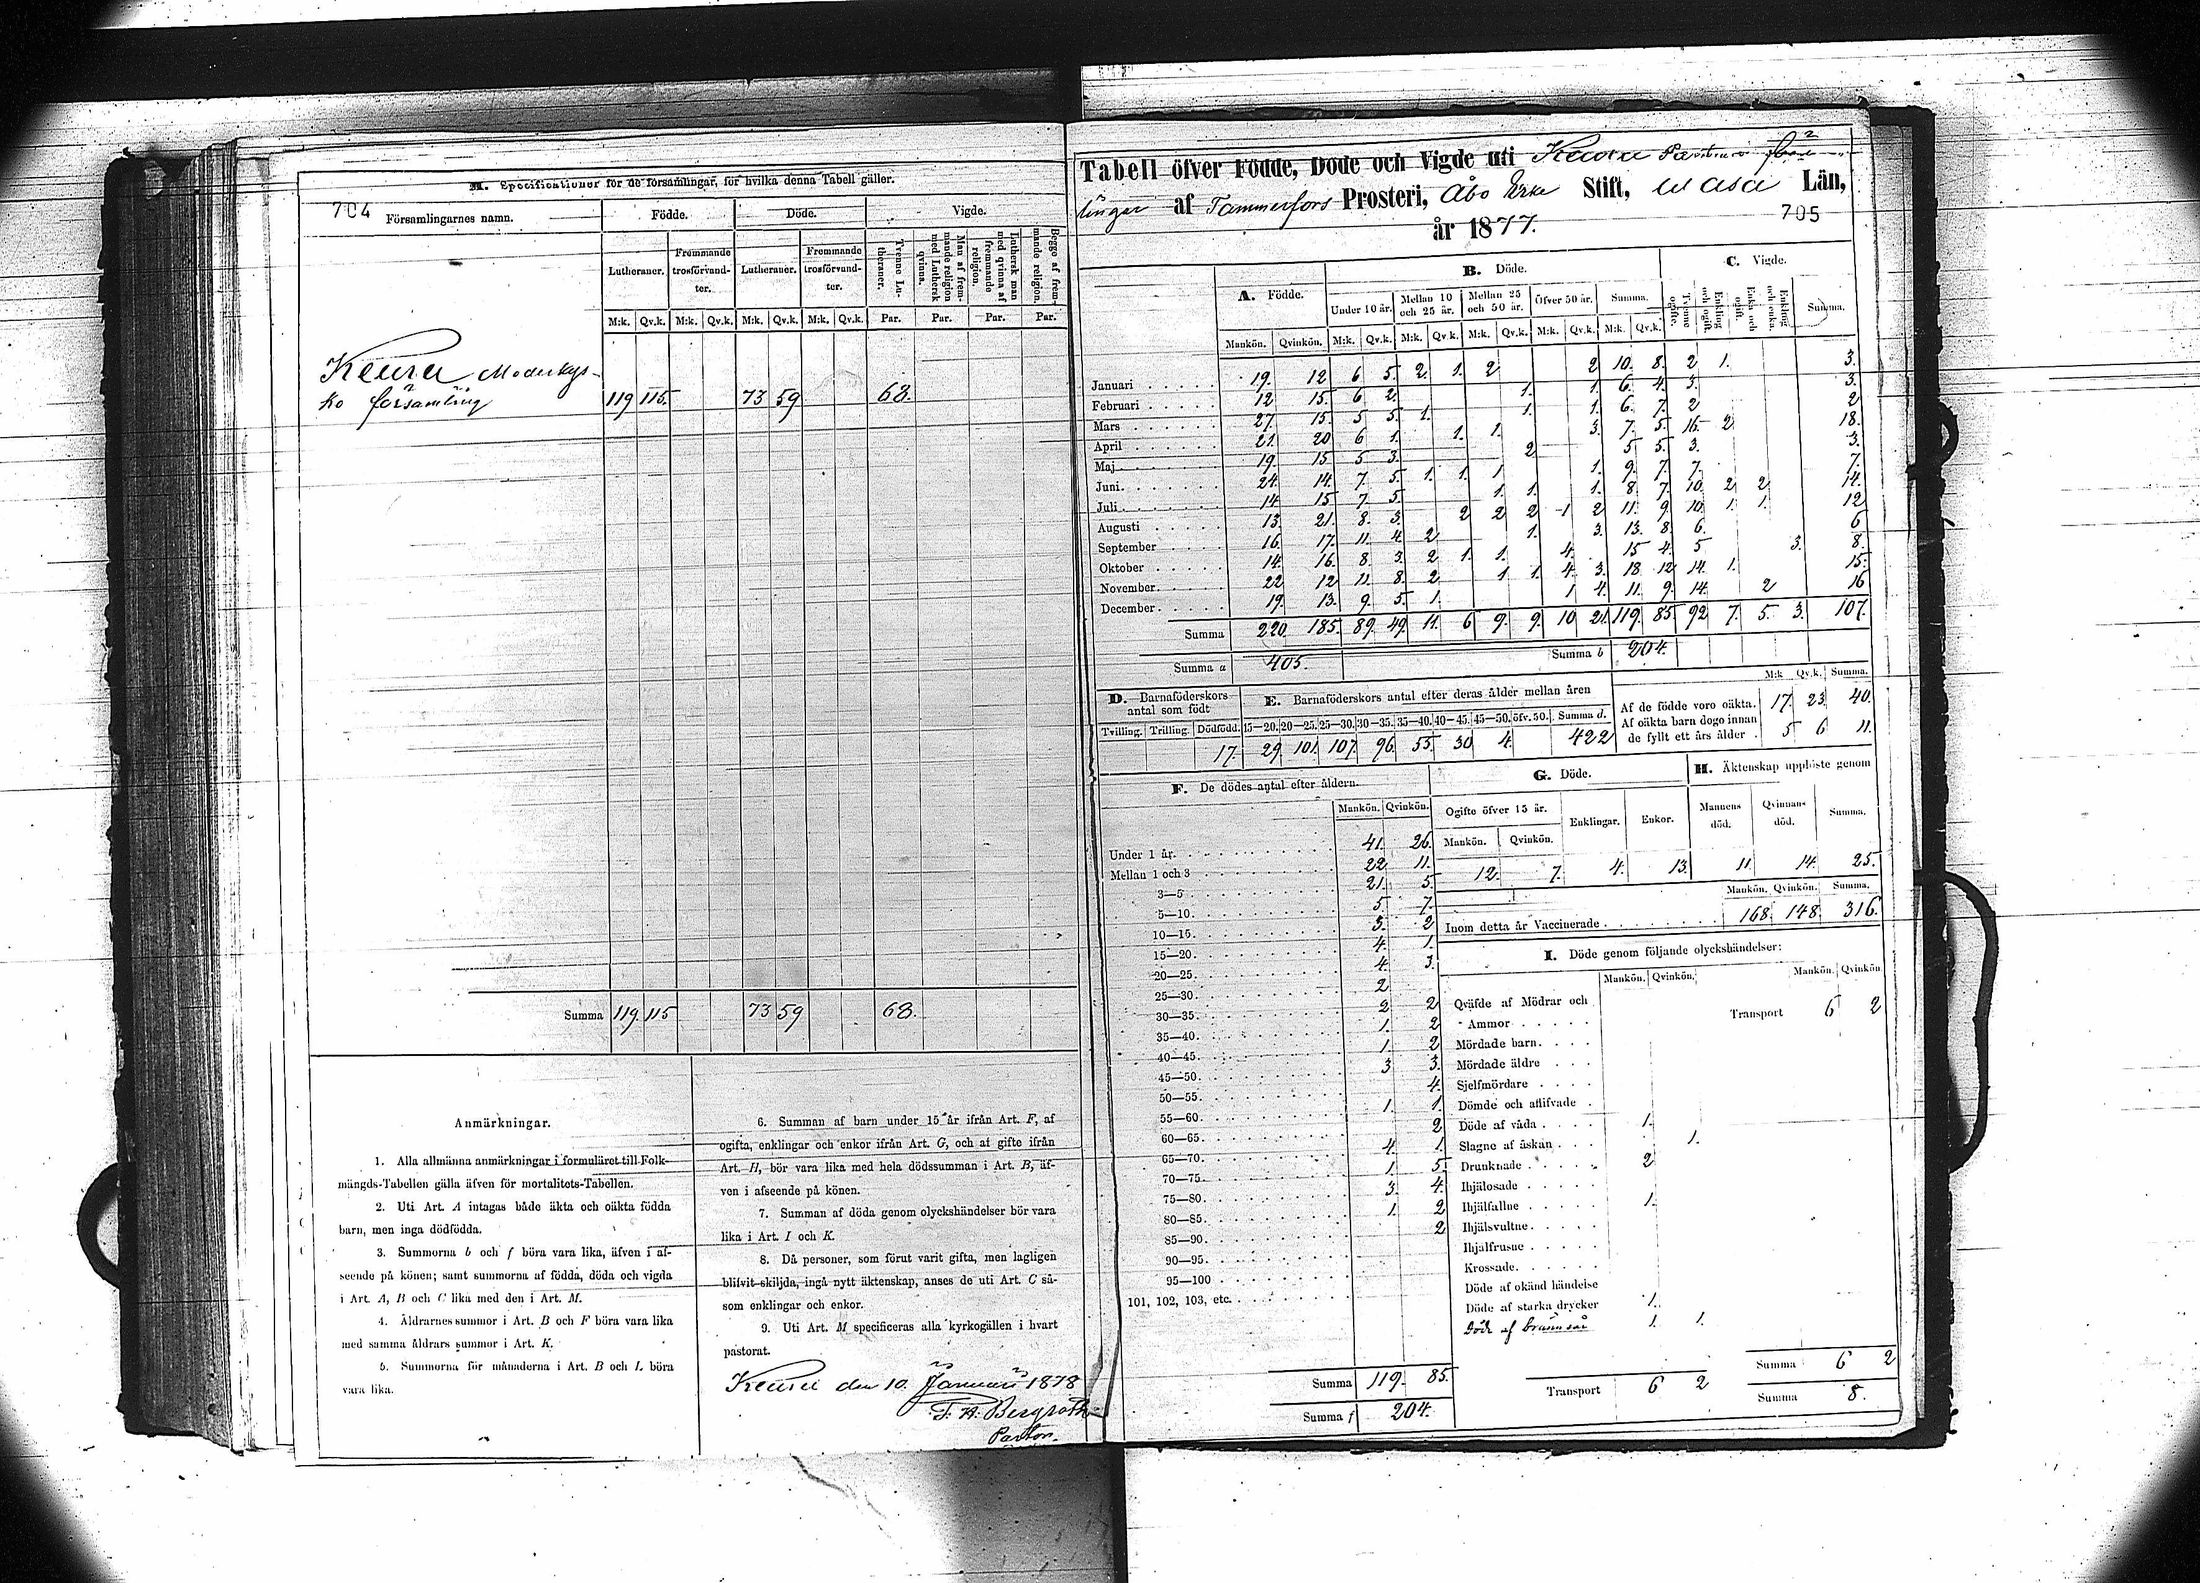 M. Specificationer för de församlingar, för hvilka denna Tabell gäller.
704
Församlingarnes namn. Födde. Döde. Vigde.
Lutheraner. Fremmande trosförvandter. Lutheraner. Fremmande trosförvandter. Tvenne Lutheraner. Man af fremmande religion med Luthersk qvinna. Luthersk man med qvinna af fremmande religion. Begge af fremmande religion.
M:k. Qv.k. M:k. Qv.k. M:k. Qv.k. M:k. Qv.k. Par. Par. Par. Par.
Keuru Moderkyr-
ko församling 119 115. 73 59 68.
Summa 119. 115 73 59 68.
Anmärkningar.
1. Alla allmänna anmärkningar i formuläret till Folk-
mängds-Tabellen gälla äfven för mortalitets-Tabellen.
2. Uti Art. A intagas både äkta och oäkta födda
barn, men inga dödfödda.
3. Summorna b och f böra vara lika, äfven i af-
seende på könen; samt summorna af födda, döda och vigda
i Art. A, B och C lika med den i Art. M.
4. Åldrarnes summor i Art. B och F böra vara lika
med samma åldrars summor i Art. K.
5. Summorna för månaderna i Art. B och L böra
vara lika.
6. Summan af barn under 15 år ifrån Art. F, af
ogifta, enklingar och enkor ifrån Art. G, och af gifte ifrån
Art. H, bör vara lika med hela dödssumman i Art. B, äf-
ven i afseende på könen.
7. Summan af döda genom olyckshändelser bör vara
lika i Art. I och K.
8. Då personer, som förut varit gifta, men lagligen
blifvit skiljda, ingå nytt äktenskap, anses de uti Art. C så-
som enklingar och enkor.
9. Uti Art. M specificeras alla kyrkogällen i hvart
pastorat.
Keuru den 10. Januari 1878
Bergroth
Pastor.
Tabell öfver Födde, Döde och Vigde uti Keuru
af Tammerfors Prosteri, Åbo Erke Stift, Wasa Län,
år 1877.
705
A. Födde. B. Döde. C. Vigde.
Under 10 år. Mellan 10 och 25 år. Mellan 25 och 50 år. Öfver 50 år. Summa. Tvenne ogifte. Enkling och ogift. Enka och ogift. Enkling och enka. Summa.
Mankön. Qvinkön. M:k. Qv.k. M:k. Qv.k. M:k. Qv.k. M:k. Qv.k. M:k. Qv.k.
Januari 19. 12 6 5. 2. 1. 2 2 10. 8. 2 1. 3.
Februari 12 15. 6 2. 1. 1 6. 4 3. 3.
Mars 27. 15. 5 5. 1. 1. 1. 6. 7. 2 2
April 21. 20 6 1. 1. 1. 3. 7. 5. 16. 2. 18.
Maj 19. 15 5 3. 2 5 5. 3. 3.
Juni 24. 14. 7. 5. 1. 1. 1 1. 9. 7. 7. 7.
Juli 14 15 7 5. 1. 1. 1. 8. 7. 10. 2 2 14.
Augusti 13. 21. 8. 3. 2 2 2 1 2 11. 9. 10. 1. 1. 12
September 16. 17. 11. 4. 2 1. 3. 13. 8. 6. 6
Oktober 14. 16. 8. 3. 2 1. 1. 4. 15 4. 5 3. 8.
November 22 12 11. 8. 2 1 1. 4. 3. 18. 12 14. 1. 15.
December 19. 13. 9. 5. 1. 1 4. 11. 9. 14. 2 16
Summa 220. 185. 89. 49. 11. 6 9. 9. 10 21. 119. 85 92 7. 5. 3. 107.
Summa a 405. Summa b 204.
D. Barnaföderskors antal som födt
Tvilling. Trilling. Dödfödd.
17.
E. Barnaföderskors antal efter deras ålder mellan åren
15—20. 20—25. 25—30. 30—35. 35—40. 40—45. 45—50. öfv. 50. Summa d.
29. 101. 107. 96. 55. 30 4. 422
M:k Qv.k. Summa.
Af de födde voro oäkta. 17. 23. 40.
Af oäkta barn dogo innan
de fyllt ett års ålder. 5 6 11.
F. De dödes antal efter åldern.
Mankön. Qvinkön.
Under 1 år. 41. 26.
Mellan 1 och 3 22 11.
3—5 21. 5.
5—10. 5. 7.
10—15. 3. 2
15—20. 4. 1.
20—25. 4. 3.
25—30. 2
30—35. 2 2
35—40. 1. 2
40—45. 1. 2
45—50. 3 3.
50—55. 4.
55—60. 1. 1.
60—65. 2
65—70. 4. 1.
70—75. 1. 5.
75—80. 3. 4.
80—85. 1. 2
85—90. 2
90—95.
95—100
101, 102, 103, etc.
Summa 119. 85.
Summa f 204.
G. Döde.
Ogifte öfver 15 år. Enklingar. Enkor.
Mankön. Qvinkön.
12. 7. 4. 13.
H. Äktenskap upplöste genom
Mannens död. Qvinnans död. Summa.
11 14. 25.
Mankön. Qvinkön. Summa.
Inom detta år Vaccinerade 168. 148. 316.
I. Döde genom följande olyckshändelser:
Mankön. Qvinkön. Mankön. Qvinkön
Qväfde af Mödrar och
Ammor Transport 6 2
Mördade barn.
Mördade äldre
Sjelfmördare
Dömde och aflifvade
Döde af våda 1.
Slagne af åskan 1.
Drunknade 2
Ihjälosade
Ihjälfallne 1.
Ihjälsvultne.
Ihjälfrusne
Krossade.
Döde af okänd händelse
Döde af starka drycker 1.
Döde af brännsår 1. 1.
Transport 6 2
Summa 6 2
Summa 8.